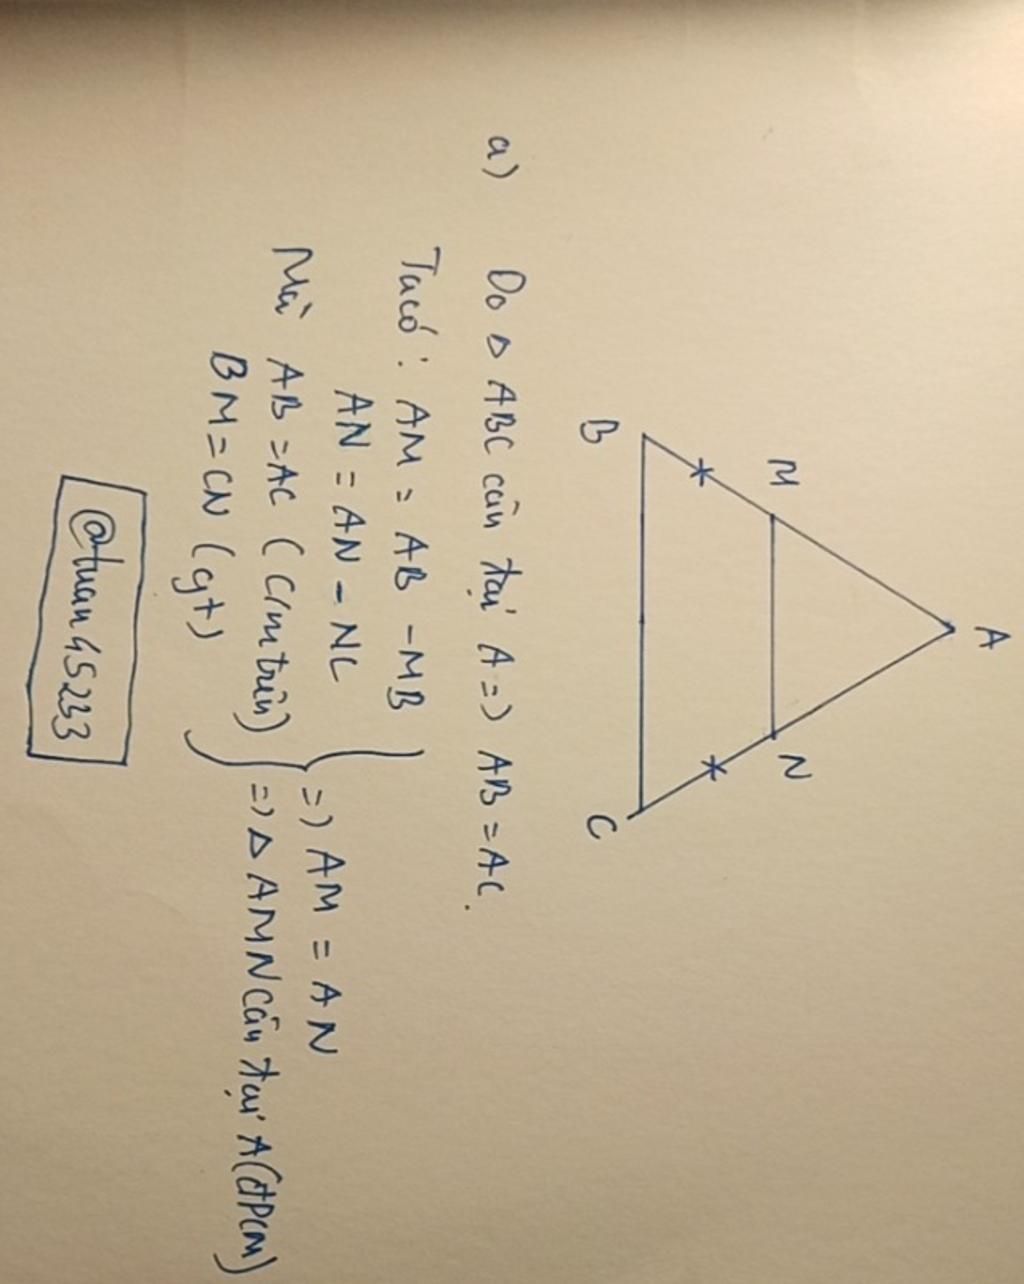 A
M
N
B
C
a) Do Δ ABC cân tại A => AB = AC.
Ta có: AM = AB - MB
AN = AN - NC
=> AM = AN
Mà AB = AC (C/m trên)
=> Δ AMN cân tại A (đpcm)
BM = CN (gt)
@tuan45233